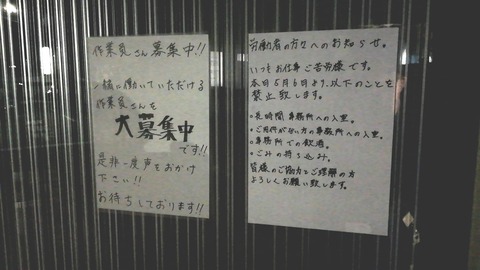 作業員さん募集中!!
一緒に働いていただける
作業員さんを
大募集中
です!!
是非一度声をおかけ
下さい!!
お待ちしております!!
労働者の方々へのお知らせ。
いつもお仕事ご苦労様です。
本日5月6日より、以下のことを
禁止致します。
○長時間事務所への入室。
○ご用件がない方の事務所への入室。
○事務所での飲酒。
○ごみの持ち込み。
皆様のご協力とご理解の方
よろしくお願い致します。